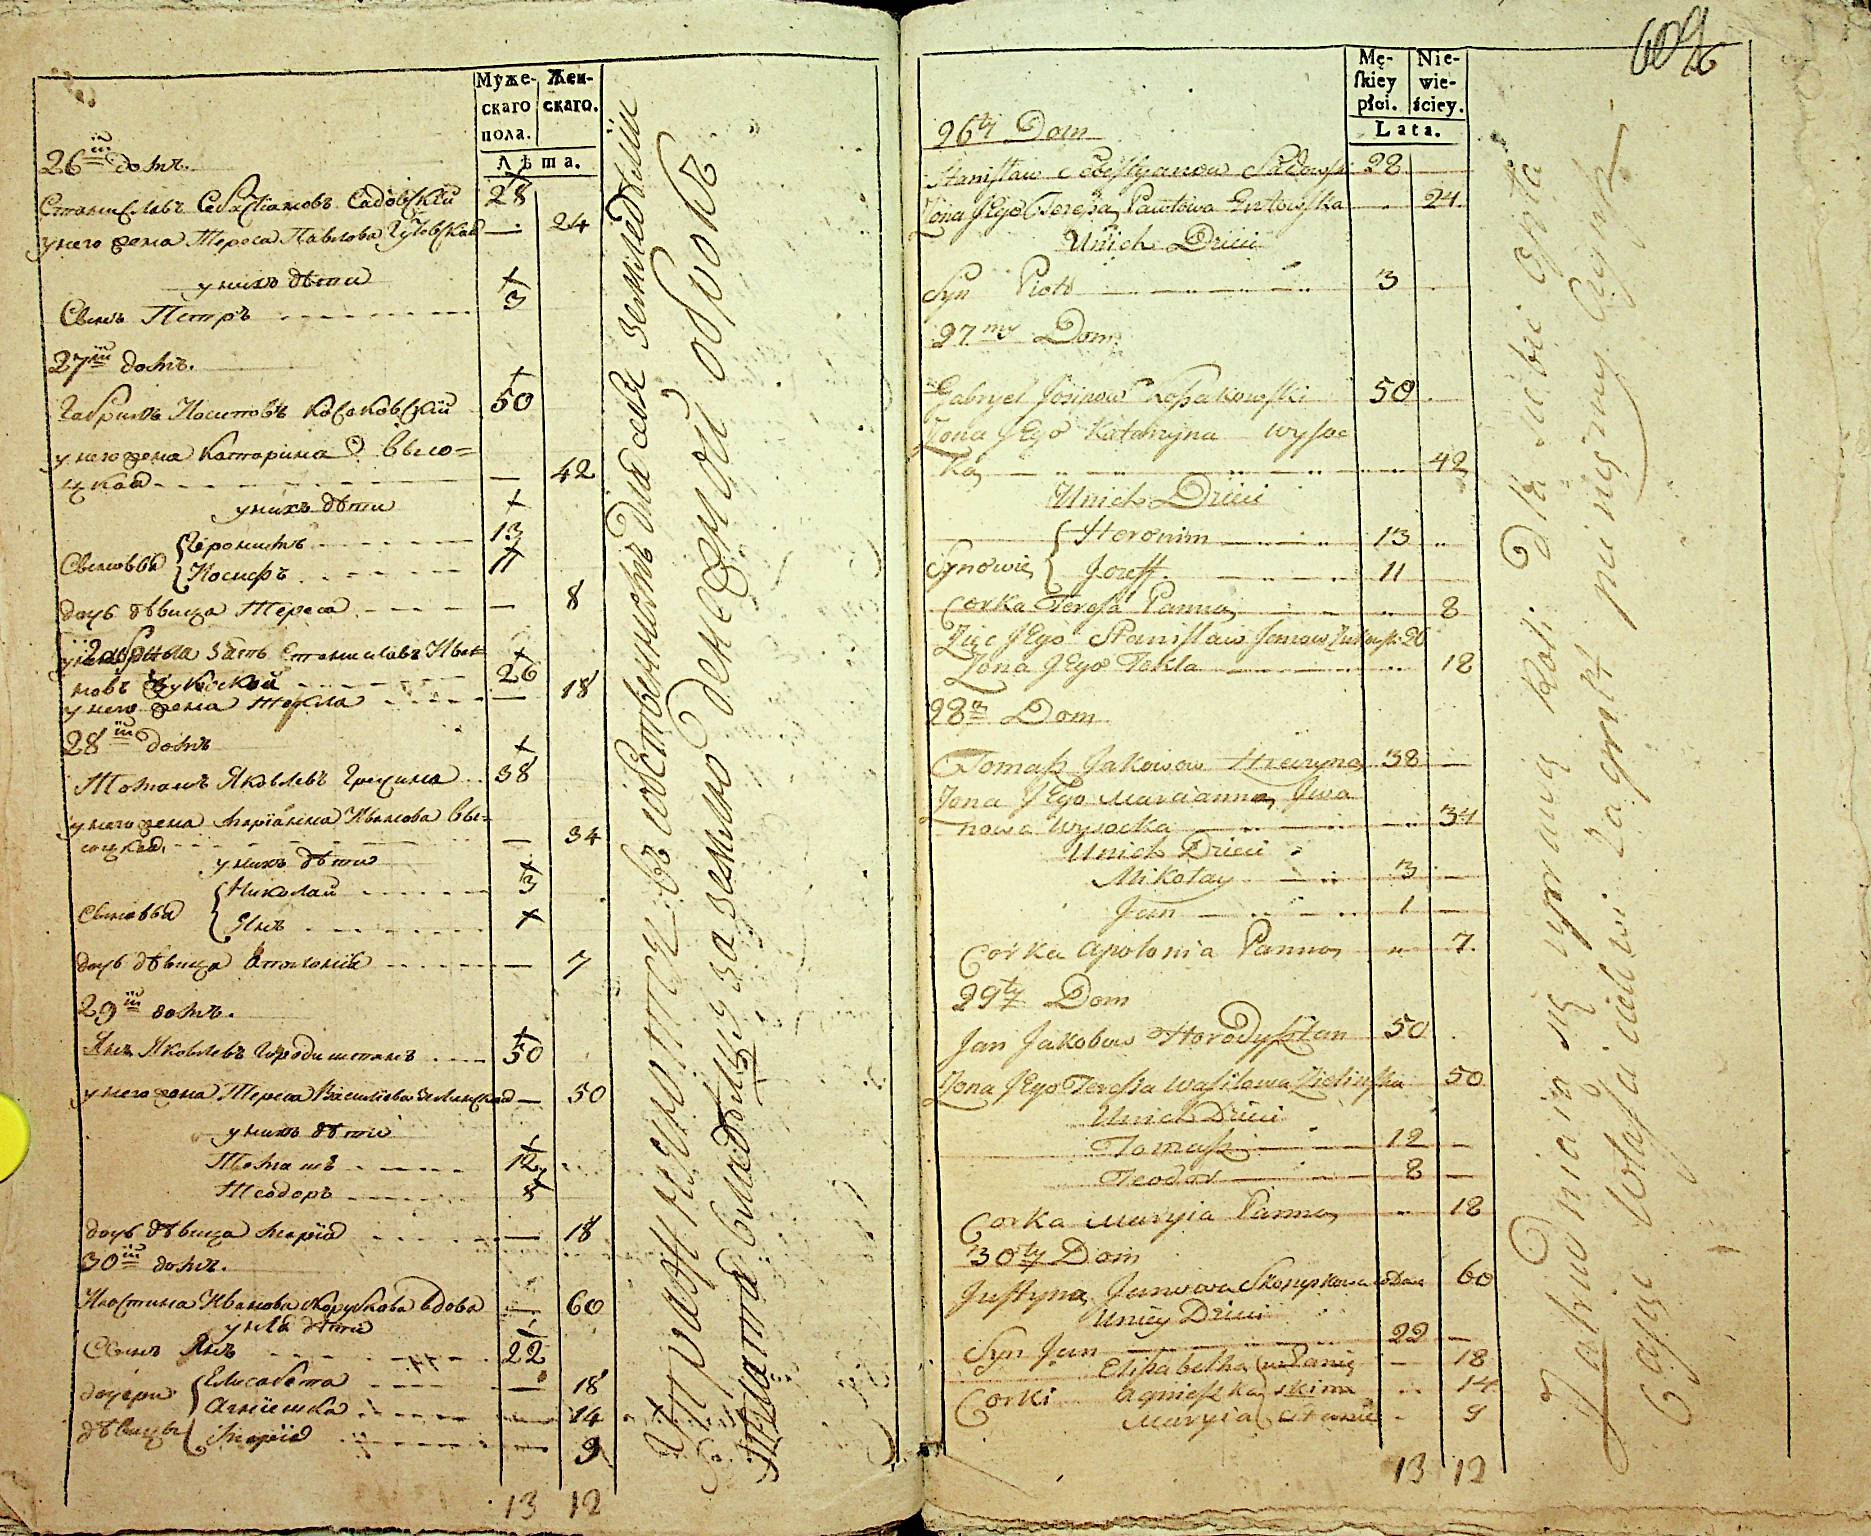 Муже-
скаго
пола.
Жен-
скаго.
Лѣта.
26й домъ.
Станиславъ Себастіановъ Садовскій 28
у него жена Тереса Павлова Гутовская — 24
у нихъ дѣти
Сынъ Петръ 3
27й домъ.
Габріель Іосифовъ Косаковскій 50
у него жена Катарина Высо=
цкая — 42
у нихъ дѣти
Сыновья { Іеронимъ 13
Іосифъ 11
дочь дѣвица Тереса — 8
зять Станиславъ Ива=
новъ 26
у него жена Текла — 18
28й домъ
Томашъ Яковлевъ Грецина 38
у него жена Маріанна Иванова Вы=
соцкая — 34
у нихъ дѣти
Сыновья { Николай 3
Янъ
дочь дѣвица Аполонія — 7
29й домъ.
Янъ Яковлевъ Городишанъ 50
у него жена Тереса Василіова Зелинская — 50
у нихъ дѣти
Томашъ 12
Теодоръ 8
дочь дѣвица Марія — 18
30й домъ.
Юстина Иванова Скорупкова вдова — 60
у нея дѣти
Сынъ Янъ 22
дочери { Елисабета — 18
Агніешка — 14
дѣвицы Марія — 9
13 12
въ собственность для себя земледѣліи
за землю денежной оброкъ
609
96
Mę-
skiey
płci.
Nie-
wie-
ściey.
Lata.
26ty Dom
Stanisław Sebestyanow Sadowski 28
Zona Jego Teresa Pawłowa Gutowska 24
Unich Dzieci
Syn Piotr 3
27my Dom
Gabryel Josipow Kossakowski 50
Zona Jego Katarzyna Wysoc
ka 42
Unich Dzieci
Synowie { Heronim 13
Jozeff 11
Corka Teresa Panna 8
Zięc Jego Stanisław Janow 26
Zona Jego Tekla 18
28y Dom
Tomasz Jakowow Hrecyna 38 —
Zona Jego Maryanna Iwa
nowa Wysocka 34
Unich Dzieci
Mikołay 3 —
Jan 1 —
Corka Apolonia Panna 7
29ty Dom
Jan Jakobow Horodyszczan 50
Zona Jego Teressa Wasilowa Zielinska 50
Unich Dzieci
Tomasz 12 —
Teodor 8 —
Corka Maryia Panna 18
30ty Dom
Justyna Janowa Skorupkowa wdowa 60
Uniey Dzieci
Syn Jan 22 —
Elisabetha 18
Corki Agnieszka 14
Maryia 9
13 12
Zatrudniaią się uprawą Roli. Dla siebie opła
caiąc Właścicielowi za grunt pieniężny Czynsz